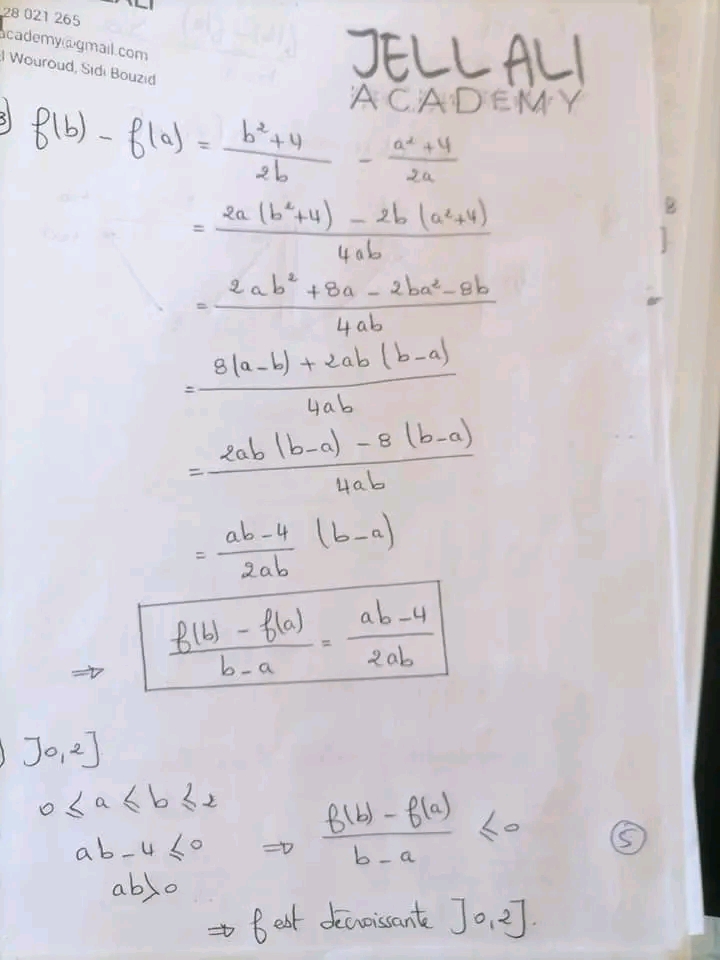 28 021 265
academy@gmail.com
l Wouroud, Sidi Bouzid
JELLALI
ACADEMY
3) f(b) - f(a) = (b² + 4)/(2b) - (a² + 4)/(2a)
= (2a (b²+4) - 2b (a²+4))/(4ab)
= (2ab² + 8a - 2ba² - 8b)/(4ab)
= (8(a-b) + 2ab (b-a))/(4ab)
= (2ab (b-a) - 8 (b-a))/(4ab)
= (ab-4)/(2ab) (b-a)
⇒ (f(b) - f(a))/(b-a) = (ab-4)/(2ab)
) ]0,2]
0 ⩽ a ⩽ b ⩽ 2
ab-4 ⩽ 0 ⇒ (f(b) - f(a))/(b-a) ⩽ 0
ab > 0
⇒ f est décroissante ]0,2].
5